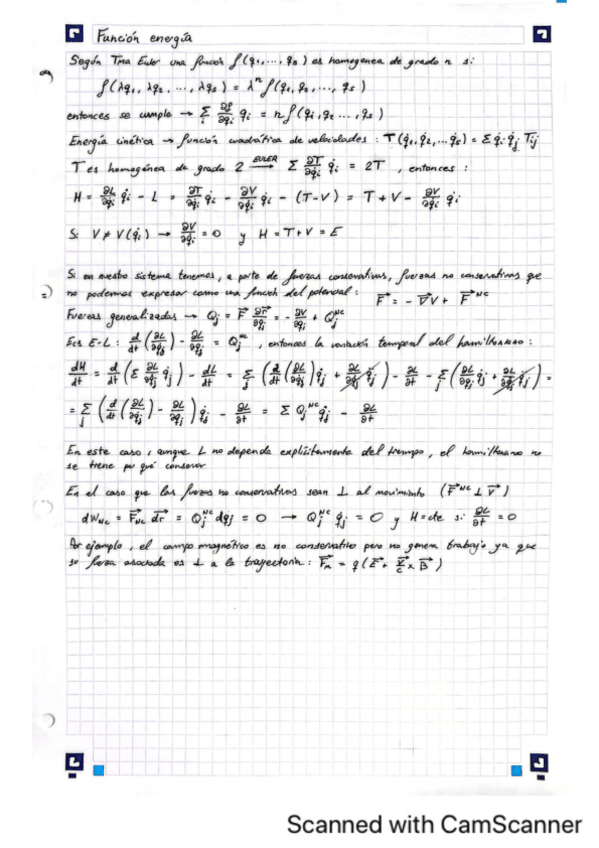 Función energía
Según Tma Euler una función f(q₁, ..., qₛ) es homogenea de grado n si:
f(λq₁, λq₂, ..., λqₛ) = λⁿ f(q₁, q₂, ..., qₛ)
entonces se cumple → Σᵢ ∂f/∂qᵢ qᵢ = n f(q₁, q₂ ..., qₛ)
Energía cinética → función cuadrática de velocidades : T(q̇₁, q̇₂, ... q̇ₛ) = Σ q̇ᵢ q̇ⱼ Tᵢⱼ
T es homogénea de grado 2 —EULER→ Σ ∂T/∂q̇ᵢ q̇ᵢ = 2T , entonces :
H = ∂L/∂q̇ᵢ q̇ᵢ - L = ∂T/∂q̇ᵢ q̇ᵢ - ∂V/∂q̇ᵢ q̇ᵢ - (T-V) = T + V - ∂V/∂q̇ᵢ q̇ᵢ
Si V ≠ V(q̇ᵢ) → ∂V/∂q̇ᵢ = 0 y H = T + V = E
Si en nuestro sistema tenemos, a parte de fuerzas conservativas, fuerzas no conservativas que
no podemos expresar como una función del potencial : F⃗ = - ∇⃗V + F⃗ᴺᶜ
Fuerzas generalizadas → Qⱼ = F⃗ ∂r⃗/∂qⱼ = - ∂V/∂qⱼ + Qⱼᴺᶜ
Ecs E-L : d/dt (∂L/∂q̇ⱼ) - ∂L/∂qⱼ = Qⱼᴺᶜ , entonces la variación temporal del hamiltoniano :
dH/dt = d/dt (Σ ∂L/∂q̇ⱼ q̇ⱼ) - dL/dt = Σⱼ (d/dt (∂L/∂q̇ⱼ) q̇ⱼ + ∂L/∂q̇ⱼ q̈ⱼ) - ∂L/∂t - Σⱼ (∂L/∂qⱼ q̇ⱼ + ∂L/∂q̇ⱼ q̈ⱼ) =
= Σⱼ (d/dt (∂L/∂q̇ⱼ) - ∂L/∂qⱼ) q̇ⱼ - ∂L/∂t = Σ Qⱼᴺᶜ q̇ⱼ - ∂L/∂t
En este caso, aunque L no dependa explícitamente del tiempo, el hamiltoniano no
se tiene por qué conservar
En el caso que las fuerzas no conservativas sean ⊥ al movimiento (F⃗ᴺᶜ ⊥ v⃗)
dW_NC = F⃗_NC dr⃗ = Qⱼᴺᶜ dqⱼ = 0 → Qⱼᴺᶜ q̇ⱼ = 0 y H=cte si ∂L/∂t = 0
Por ejemplo, el campo magnético es no conservativo pero no genera trabajo ya que
su fuerza asociada es ⊥ a la trayectoria : F⃗ₘ = q(E⃗ + v⃗/c × B⃗)
Scanned with CamScanner